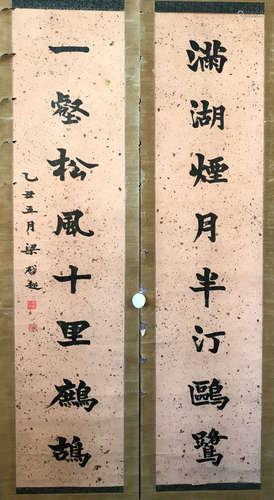 滿湖煙月半汀鷗鷺
一壑松風十里鷓鴣
乙丑五月梁啟超